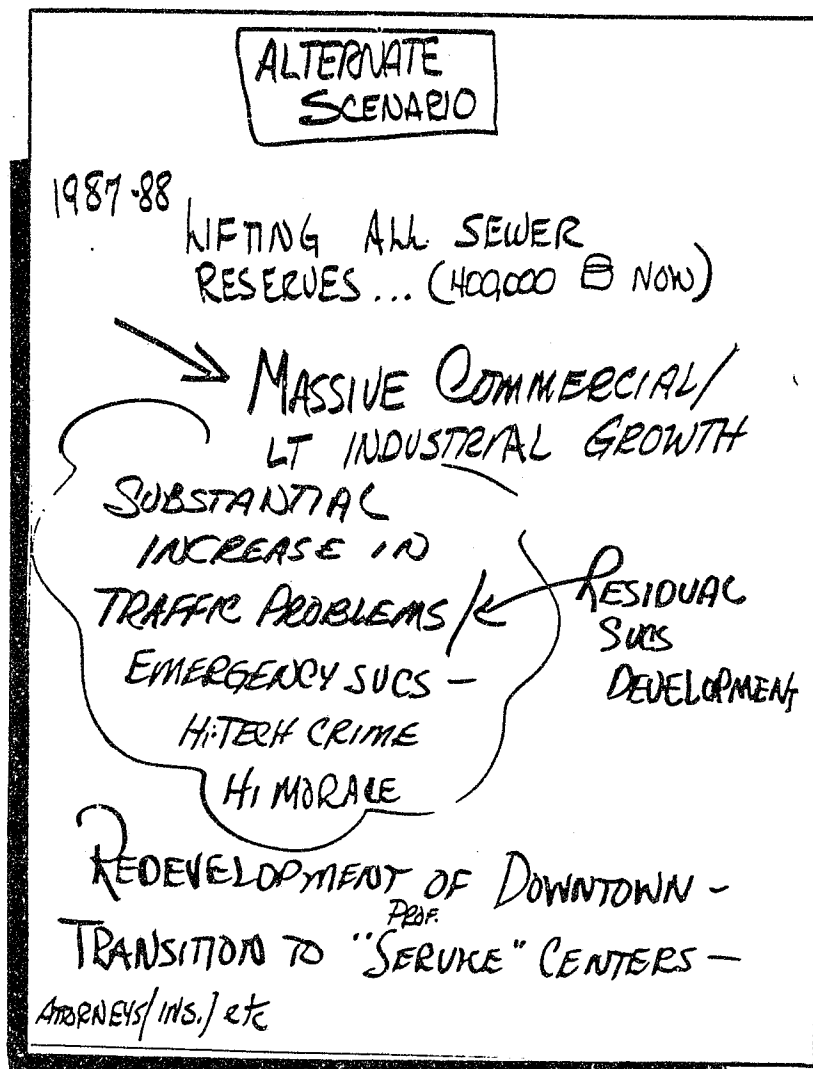 ALTERNATE
SCENARIO
1987-88
LIFTING ALL SEWER
RESERVES... (400,000 NOW)
MASSIVE COMMERCIAL/
LT INDUSTRIAL GROWTH
SUBSTANTIAL
INCREASE IN
TRAFFIC PROBLEMS/
EMERGENCY SVCS -
HI-TECH CRIME
HI MORALE
RESIDUAL
SVCS
DEVELOPMENT
REDEVELOPMENT OF DOWNTOWN -
TRANSITION TO "PROF. SERVICE" CENTERS -
ATTORNEYS/INS./etc